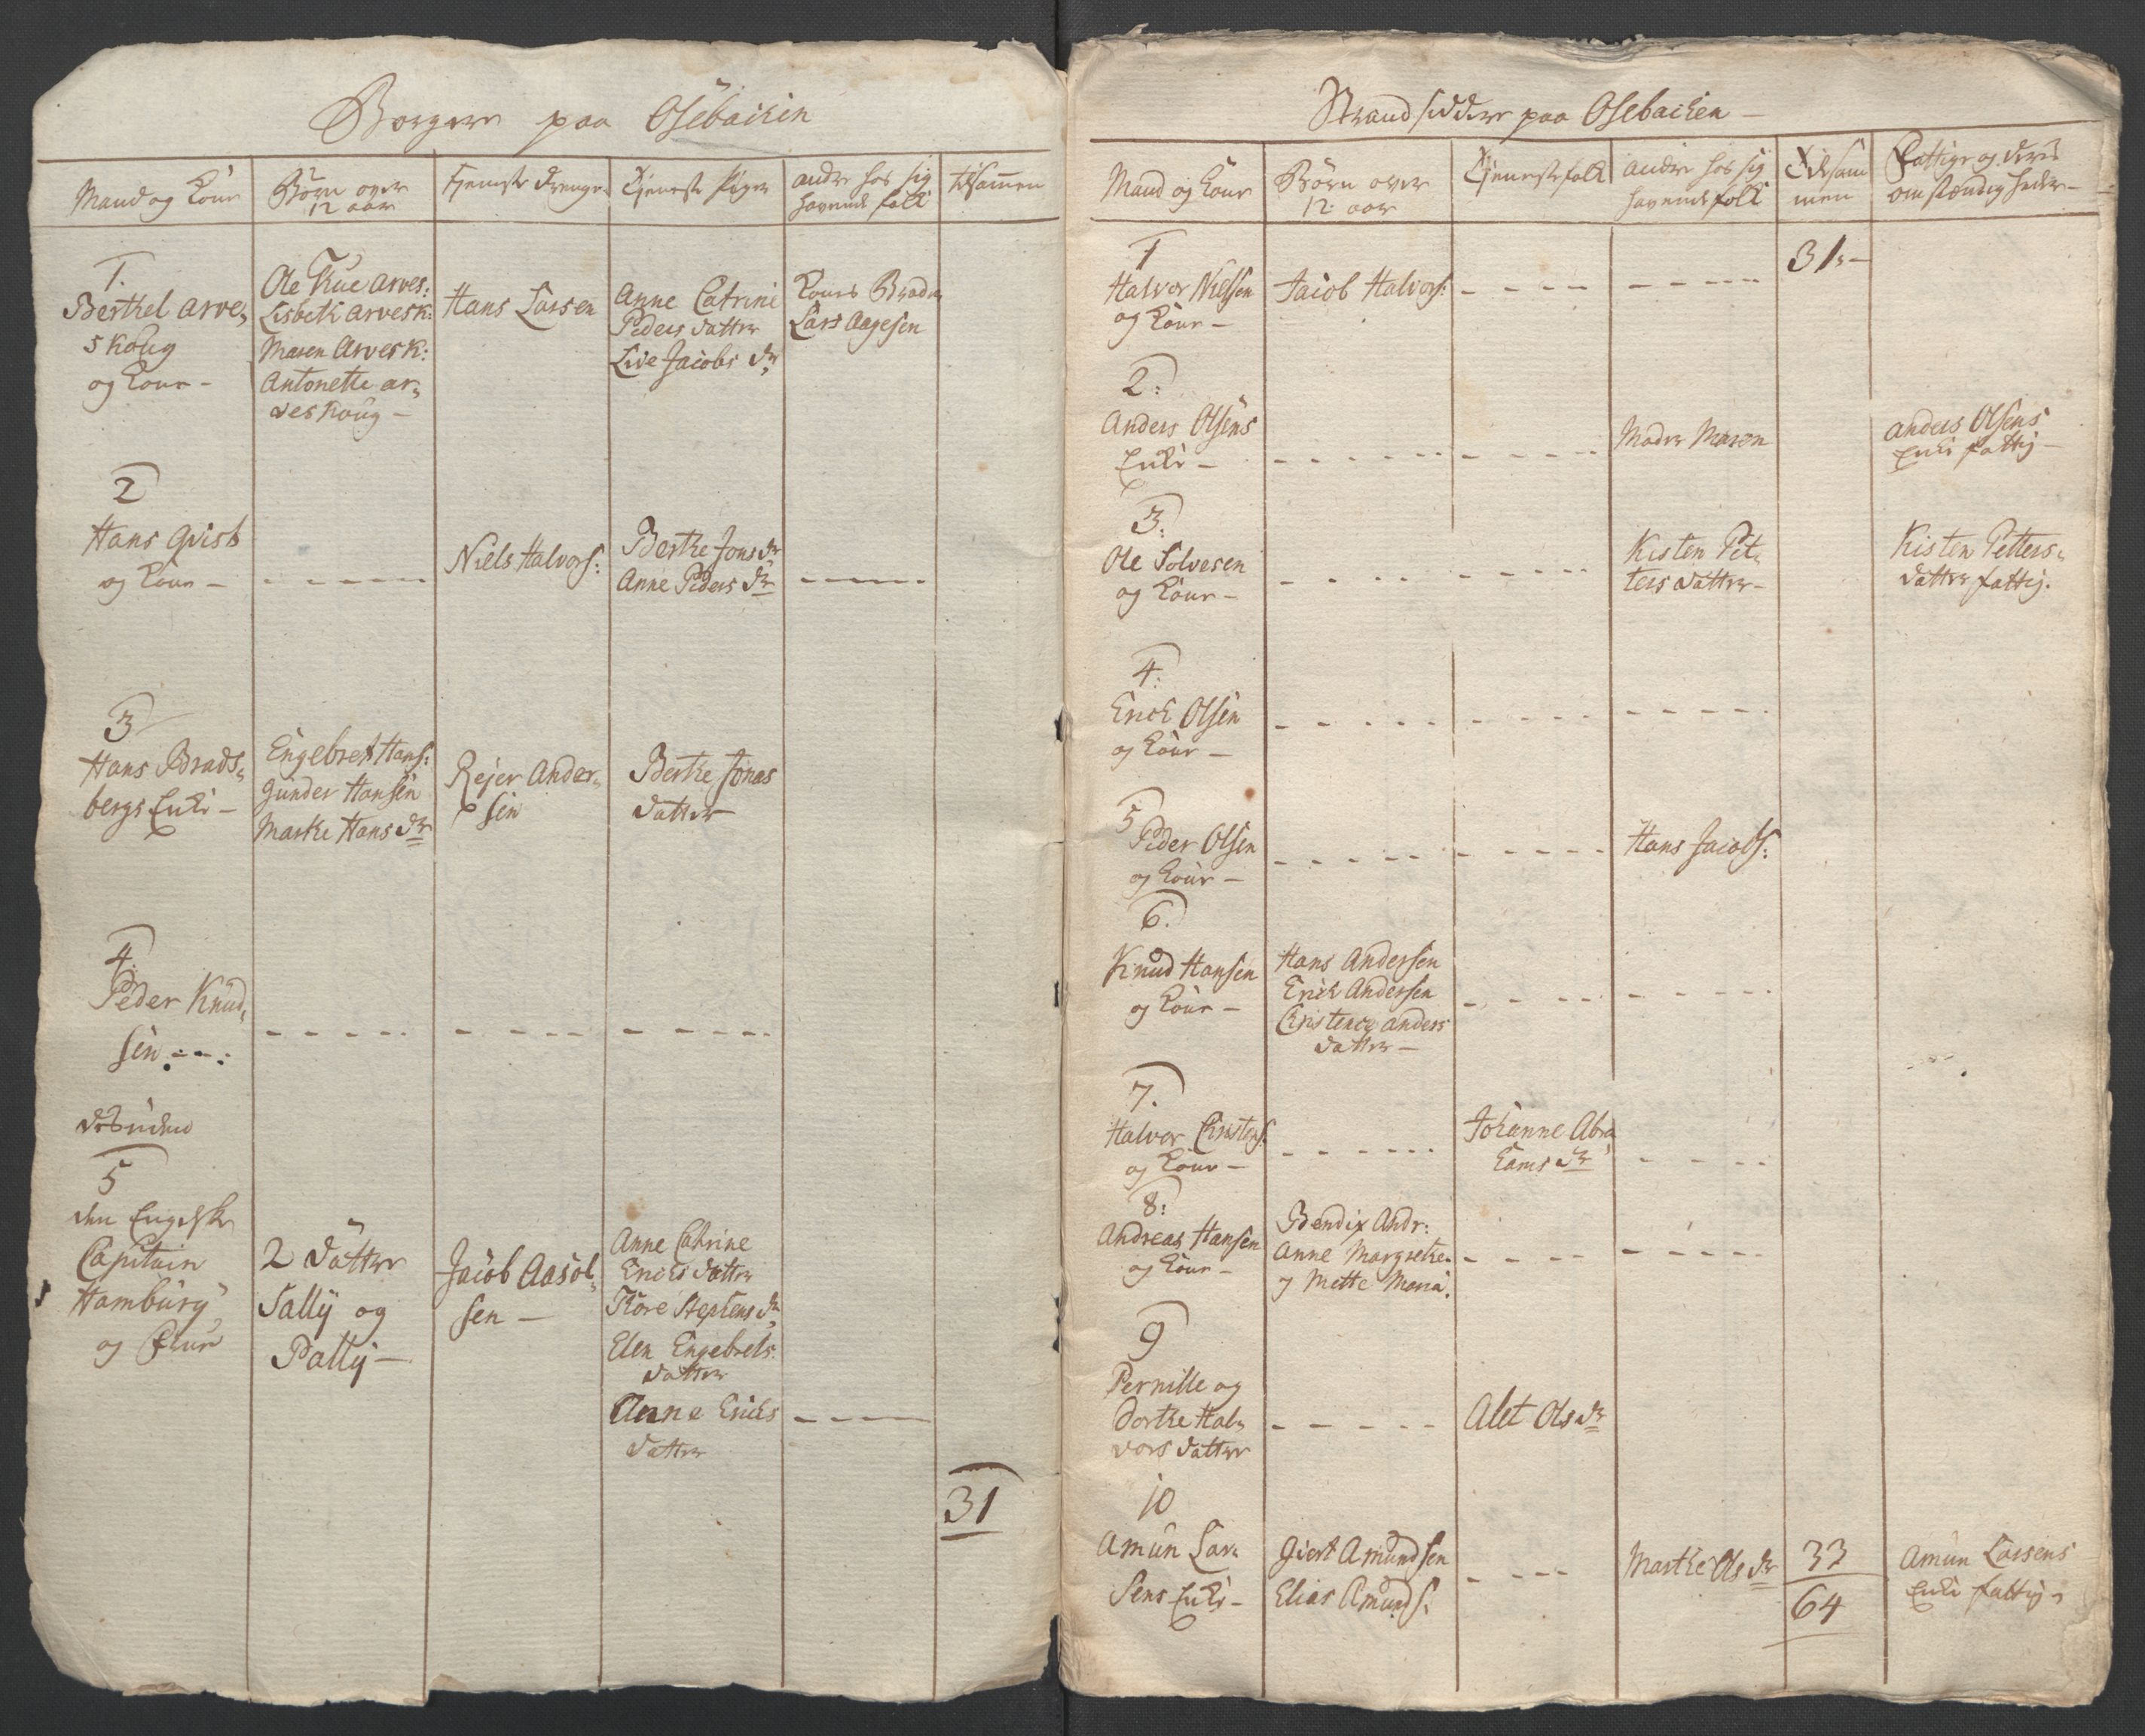 Borgere paa Osebachen
Mand og Kone
Børn over
12 aar
tjeneste drenge
Tjeneste Piger
andre hos sig
havende folk
tilsammen
1.
Berthel Arve„
skoug
og Kone –
Ole Kue Arves:
Lisbeth Arvesk:
Maren Arvesk:
Antonette ar„
veskoug –
Hans Larsen
Anne Catrine
Peders datter
Live Jacobs dr
Kones Broder
Lars Aagesen
2
Hans Qvist
og Kone –
Niels Halvors:
Berthe Jons dr
Anne Peders dr
3
Hans Brads„
bergs Enke –
Engebret Hans:
Gunder Hansen
Marthe Hans dr
Rejer Ander„
sen
Berthe Jonas
datter
4.
Peder Knud„
sen
desuden
5
den Engelske
Capitain
Hamburg
og Frue
2 døttre
Sally og
Pally –
Jacob Aasol„
sen –
Anne Catrine
Erics datter
Thore Stephens dr
Elen Engebrets
datter
Anne Erichs
datter
31
Strandsiddere paa Osebachen –
Mand og Kone
Børn over
12 aar
Tjenestefolk
andre hos sig
havende folk
Tilsam
men
Fattige og deres
omstændigheder –
1
Halvor Nielsen
og Kone –
Jacob Halvors:
31 –
2:
Anders Olsens
Enke –
Moder Maren
Anders Olsens
Enke fattig –
3:
Ole Solvesen
og Kone –
Kisten Pet„
ters datter –
Kisten Petters„
datter fattig.
4:
Erich Olsen
og Kone –
5
Peder Olsen
og Kone –
Hans Jacobs:
6.
Knud Hansen
og Kone –
Hans Andersen
Erich Andersen
Christence Anders
datter –
7.
Halvor Christens:
og Kone –
Johanne Abra
hams dr
8:
Andreas Hansen
og Kone –
Bendix Andr:
Anne Margrethe
og Mette Maria.
9
Pernille og
Dorthe Hal„
vors datter
Alet Ols dr
10
Amun Lar„
sens Enke –
Giert Amundsen
Elias Amunds:
Marthe Ols dr
33
64
Amun Larsens
Enke fattig –